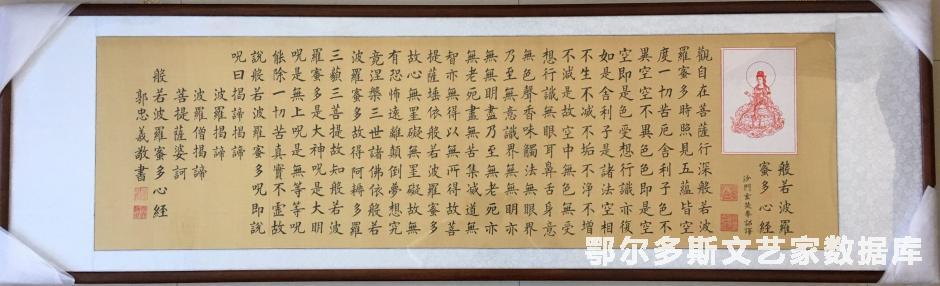 般若波羅
蜜多心經
沙門玄奘奉詔譯
觀自在菩薩行深般若波
羅蜜多時照見五蘊皆空
度一切苦厄舍利子色不
異空空不異色色即是空
空即是色受想行識亦復
如是舍利子是諸法空相
不生不滅不垢不淨不增
不減是故空中無色無受
想行識無眼耳鼻舌身意
無色聲香味觸法無眼界
乃至無意識界無無明亦
無無明盡乃至無老死亦
無老死盡無苦集滅道無
智亦無得以無所得故菩
提薩埵依般若波羅蜜多
故心無罣礙無罣礙故無
有恐怖遠離顛倒夢想究
竟涅槃三世諸佛依般若
波羅蜜多故得阿耨多羅
三藐三菩提故知般若波
羅蜜多是大神呪是大明
呪是無上呪是無等等呪
能除一切苦真實不虛故
說般若波羅蜜多呪即說
呪曰揭諦揭諦
波羅揭諦
波羅僧揭諦
菩提薩婆訶
般若波羅蜜多心經
郭忠義敬書
鄂尔多斯文艺家数据库